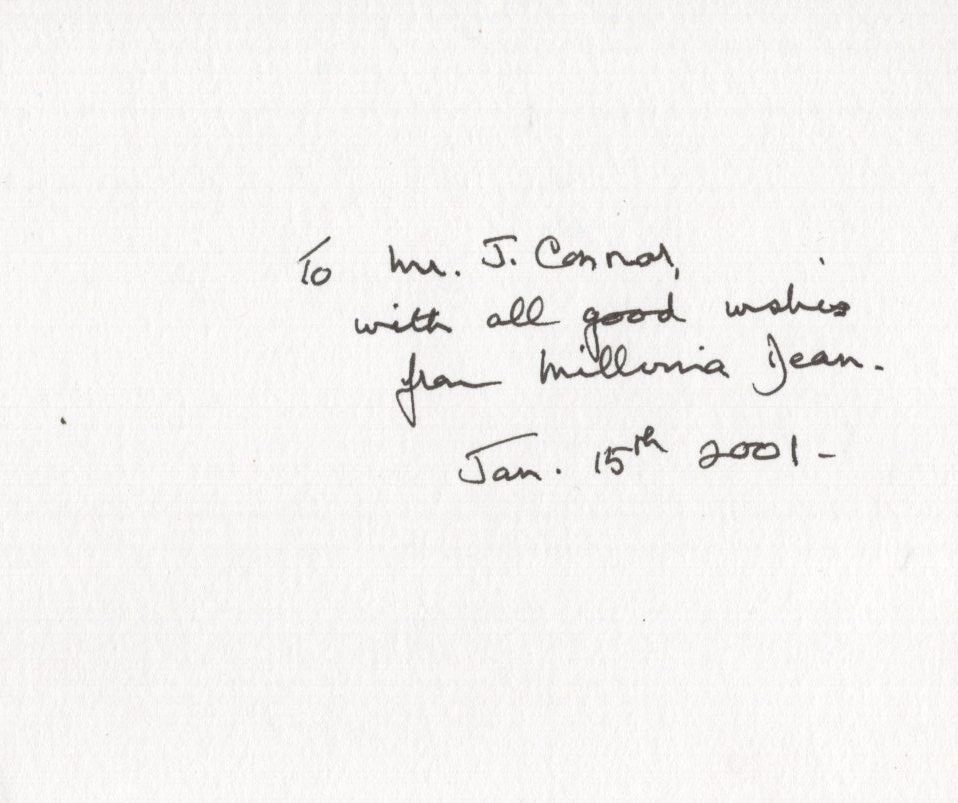 To Mr. J. Connor,
with all good wishes
from Millvina Dean.
Jan. 15th 2001-